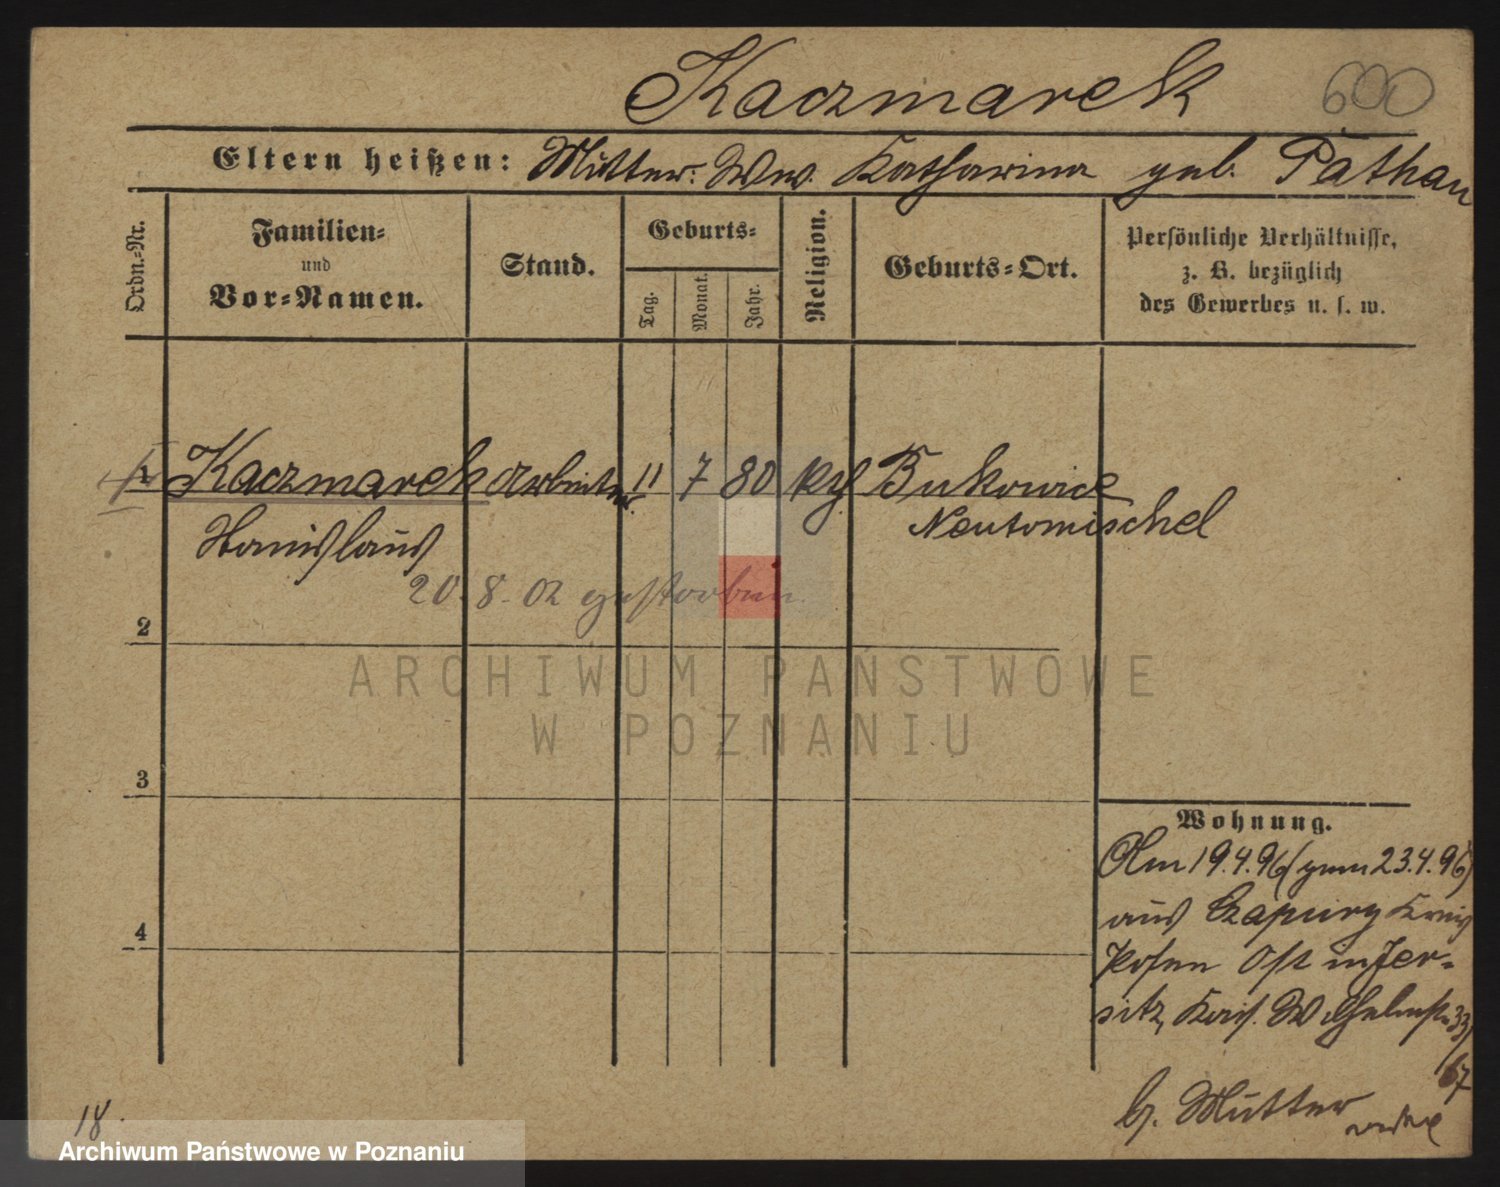 Kaczmarek 600
Eltern heißen: Mutter: Wwe. Katharina geb. Pathan
Ordn.-Nr.
Familien-
und
Vor-Namen.
Stand.
Geburts-
Tag.
Monat.
Jahr.
Religion.
Geburts-Ort.
Persönliche Verhältnisse,
z. B. bezüglich
des Gewerbes u. s. w.
1 Kaczmarek Arbeiter 11 7 80 kth Bukowice
Stanislaus Neutomischel
20.8.02 gestorben.
2
ARCHIWUM PAŃSTWOWE
W POZNANIU
3
4
Wohnung.
Am 19.4.96 (gem 23.4.96)
aus Czapury Kreis
Posen Ost in Jer-
sitz, Kais. Wilhelmstr. 33/
67
b. Mutter
18.
Archiwum Państwowe w Poznaniu